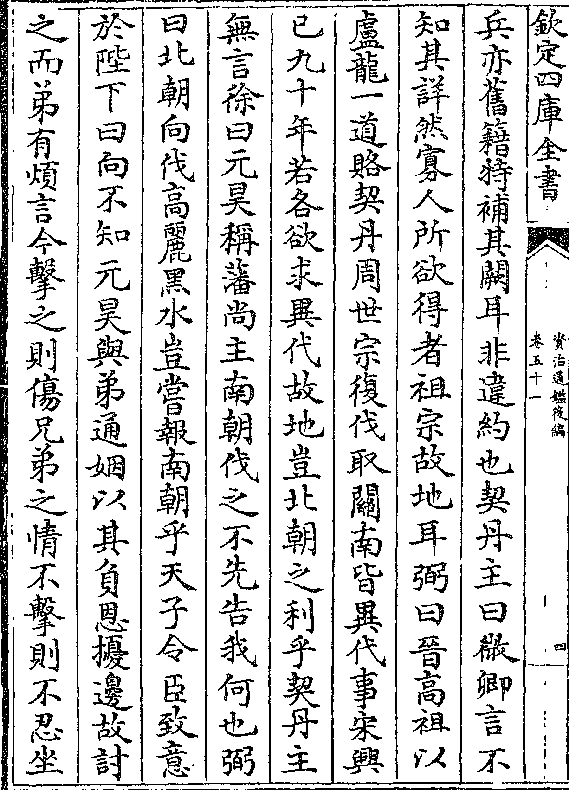 欽定四庫全書
資治通鑑後編
卷五十一
四
兵亦舊籍特補其闕耳非違約也契丹主曰微卿言不
知其詳然寡人所欲得者祖宗故地耳弼曰晉高祖以
盧龍一道賂契丹周世宗復伐取關南皆異代事宋興
已九十年若各欲求異代故地豈北朝之利乎契丹主
無言徐曰元昊稱藩尚主南朝伐之不先告我何也弼
曰北朝向伐高麗黑水豈嘗報南朝乎天子令臣致意
於陛下曰向不知元昊與弟通姻以其負恩擾邊故討
之而弟有煩言今擊之則傷兄弟之情不擊則不忍坐